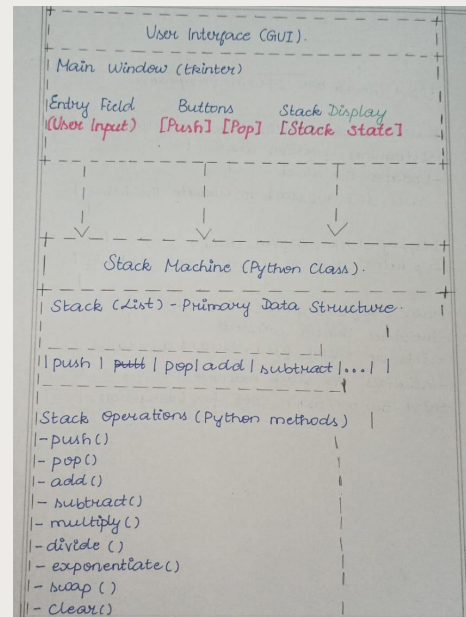 User Interface (GUI).
Main Window (tkinter)
Entry Field Buttons Stack Display
(User Input) [Push] [Pop] [Stack State]
Stack Machine (Python Class).
Stack (List) - Primary Data Structure.
|push | pop| add | subtract |...| |
Stack Operations (Python methods) |
|- push()
|- pop()
|- add()
|- subtract()
|- multiply()
|- divide ()
|- exponentiate()
|- swap ()
|- clear()